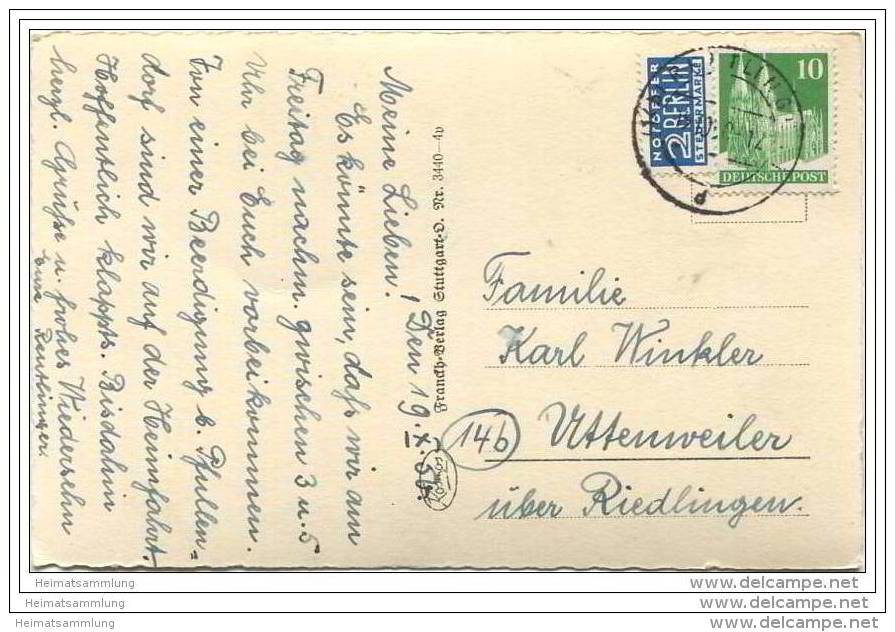 Meine Lieben. / Den 19. X. 50.
Es könnte sein, daß wir am
Freitag nachm. zwischen 3 u. 5
Uhr bei Euch vorbeikommen.
Von einer Beerdigung b. Pfullen=
dorf sind wir auf der Heimfahrt.
Hoffentlich klappts. Bisdahin
herzl. Grüße u. frohes Wiedersehn
Eure Reutlinger.
Franckh-Verlag Stuttgart-O. Nr. 3440—4p
Kosmos
NOTOPFER
2 BERLIN
STEUERMARKE
10
DEUTSCHE POST
Familie
Karl Winkler
14b Uttenweiler
über Riedlingen.
Heimatsammlung
Heimatsammlung
Heimatsammlung
www.delcampe.net
www.delcampe.net
www.delcampe.net